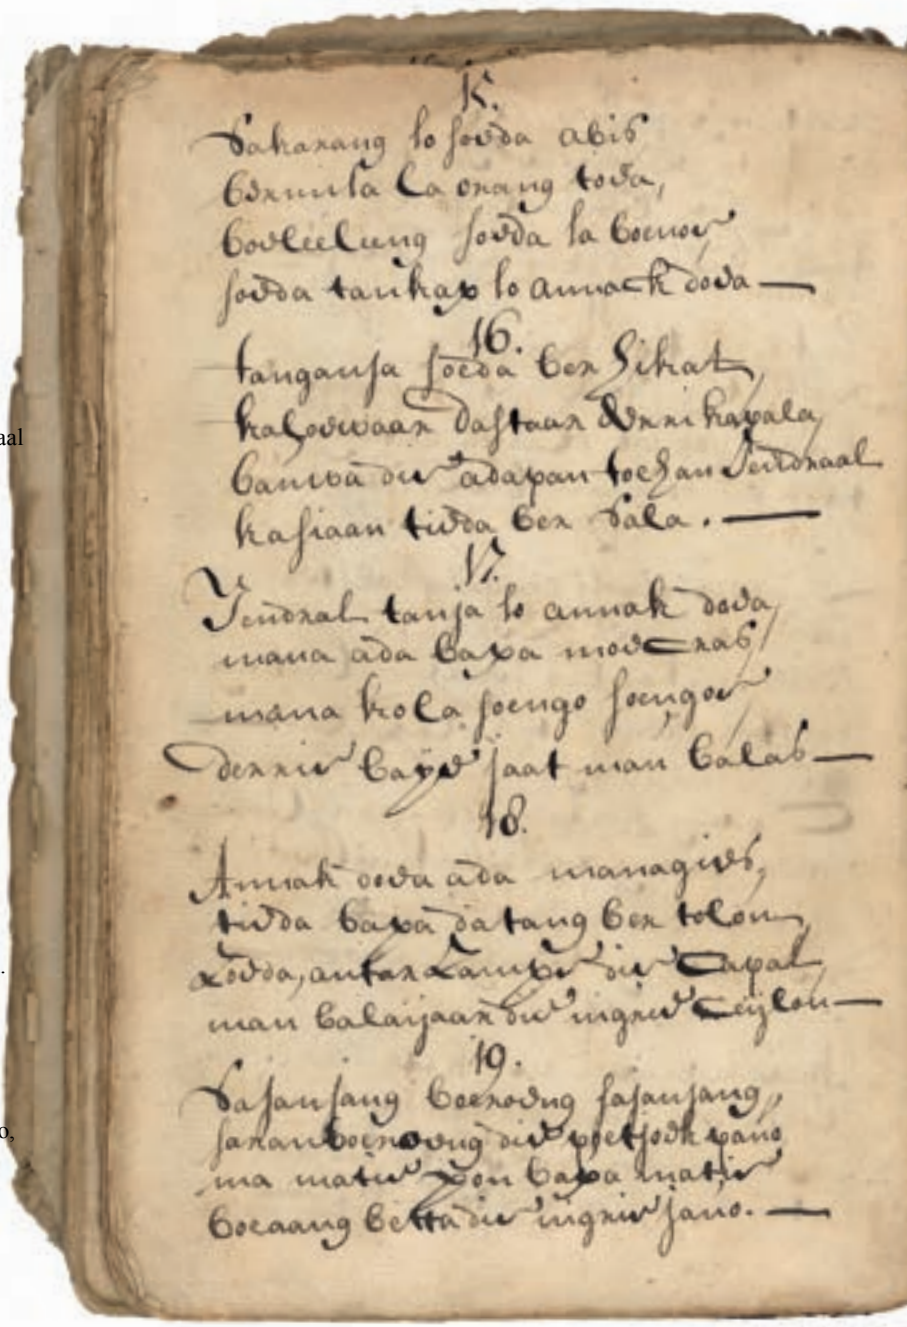 15.
Sakarang lo soeda abis
bermila la orang toea,
boeleelieng soeda la boenoe
soeda tankap lo annack doea —
16.
tangansa soeda ber Jikat,
kaloewaar dastaar derri kapala,
bawa die adapan toehan Jendraal
kasiaan tieda ber sala. —
17.
Jendral tanja lo annak doea,
mana ada bapa moe eras,
mana kola soengo soengoe
derrie baije jaat mau balas —
18.
Annak doea ada managies,
tieda bapa datang ber tolon,
Loeda, antar Lampe die Capal,
mau balaijaar die ingrie Ceijlon —
19.
Sajanjang boeroeng sajanjang,
saran boeroeng die poetjoek pano
ma matie pon bapa matie
boeaang betta die ingrie jano. —
aal
.
o,